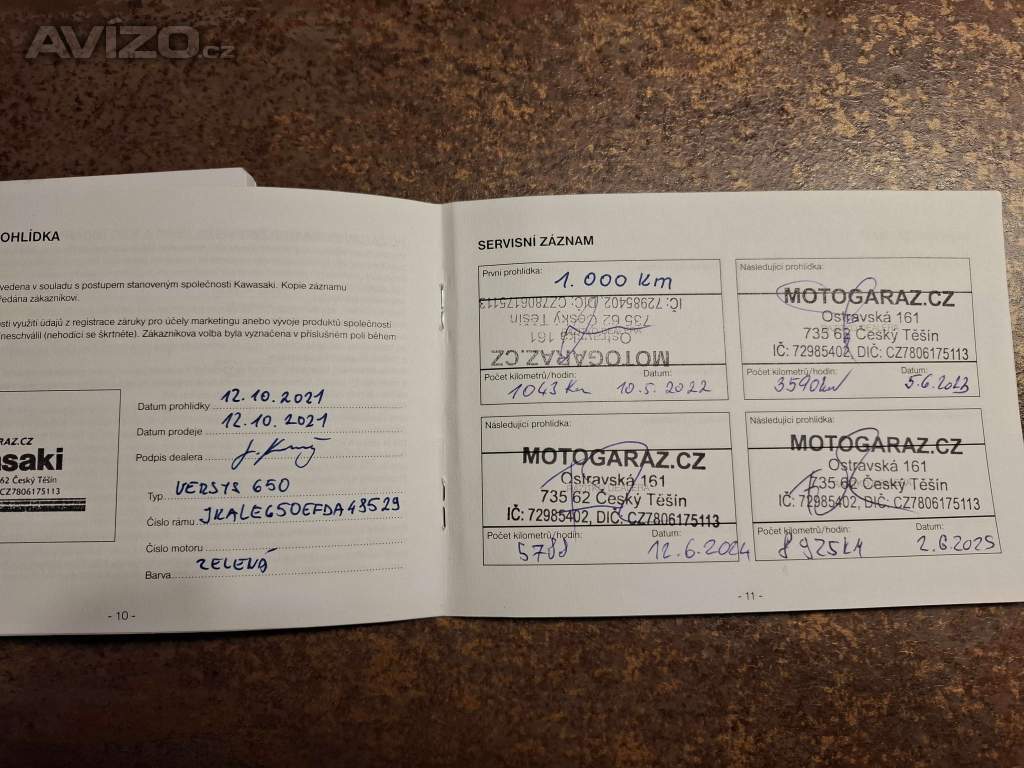 AVÍZO.cz
OHLÍDKA
vedena v souladu s postupem stanoveným společností Kawasaki. Kopie záznamu
ředána zákazníkovi.
sti využití údajů z registrace záruky pro účely marketingu anebo vývoje produktů společnosti
neschválil (nehodící se škrtněte). Zákazníkova volba byla vyznačena v příslušném poli během
RAZ.CZ
asaki
62 Český Těšín
CZ7806175113
Datum prohlídky 12.10.2021
Datum prodeje 12.10.2021
Podpis dealera
Typ VERSYS 650
Číslo rámu JKALE650EFDA48529
Číslo motoru -
Barva ZELENÁ
- 10 -
SERVISNÍ ZÁZNAM
První prohlídka: 1.000 Km
MOTOGARAZ.CZ
Ostravská 161
735 62 Český Těšín
IČ: 72985402, DIČ: CZ7806175113
Počet kilometrů/hodin: Datum:
1043 Km 10.5.2022
Následující prohlídka:
MOTOGARAZ.CZ
Ostravská 161
735 62 Český Těšín
IČ: 72985402, DIČ: CZ7806175113
Počet kilometrů/hodin: Datum:
3590km 5.6.2023
Následující prohlídka:
MOTOGARAZ.CZ
Ostravská 161
735 62 Český Těšín
IČ: 72985402, DIČ: CZ7806175113
Počet kilometrů/hodin: Datum:
5788 12.6.2024
Následující prohlídka:
MOTOGARAZ.CZ
Ostravská 161
735 62 Český Těšín
IČ: 72985402, DIČ: CZ7806175113
Počet kilometrů/hodin: Datum:
8925km 2.6.2025
- 11 -